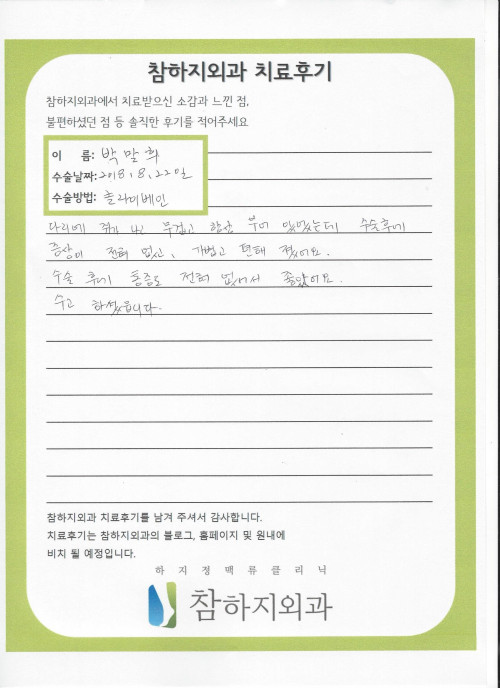 참하지외과 치료후기
참하지외과에서 치료받으신 소감과 느낀 점,
불편하셨던 점 등 솔직한 후기를 적어주세요
이 름: 박말희
수술날짜: 2018.8.22일
수술방법: 클라리베인
다리에 쥐가 나고 무겁고 항상 부어 있었는데 수술후에
증상이 전혀 없고, 가볍고 편해 졌어요.
수술 후에 통증도 전혀 없어서 좋았어요.
수고 하셨습니다.
참하지외과 치료후기를 남겨 주셔서 감사합니다.
치료후기는 참하지외과의 블로그, 홈페이지 및 원내에
비치 될 예정입니다.
하지정맥류클리닉
참하지외과